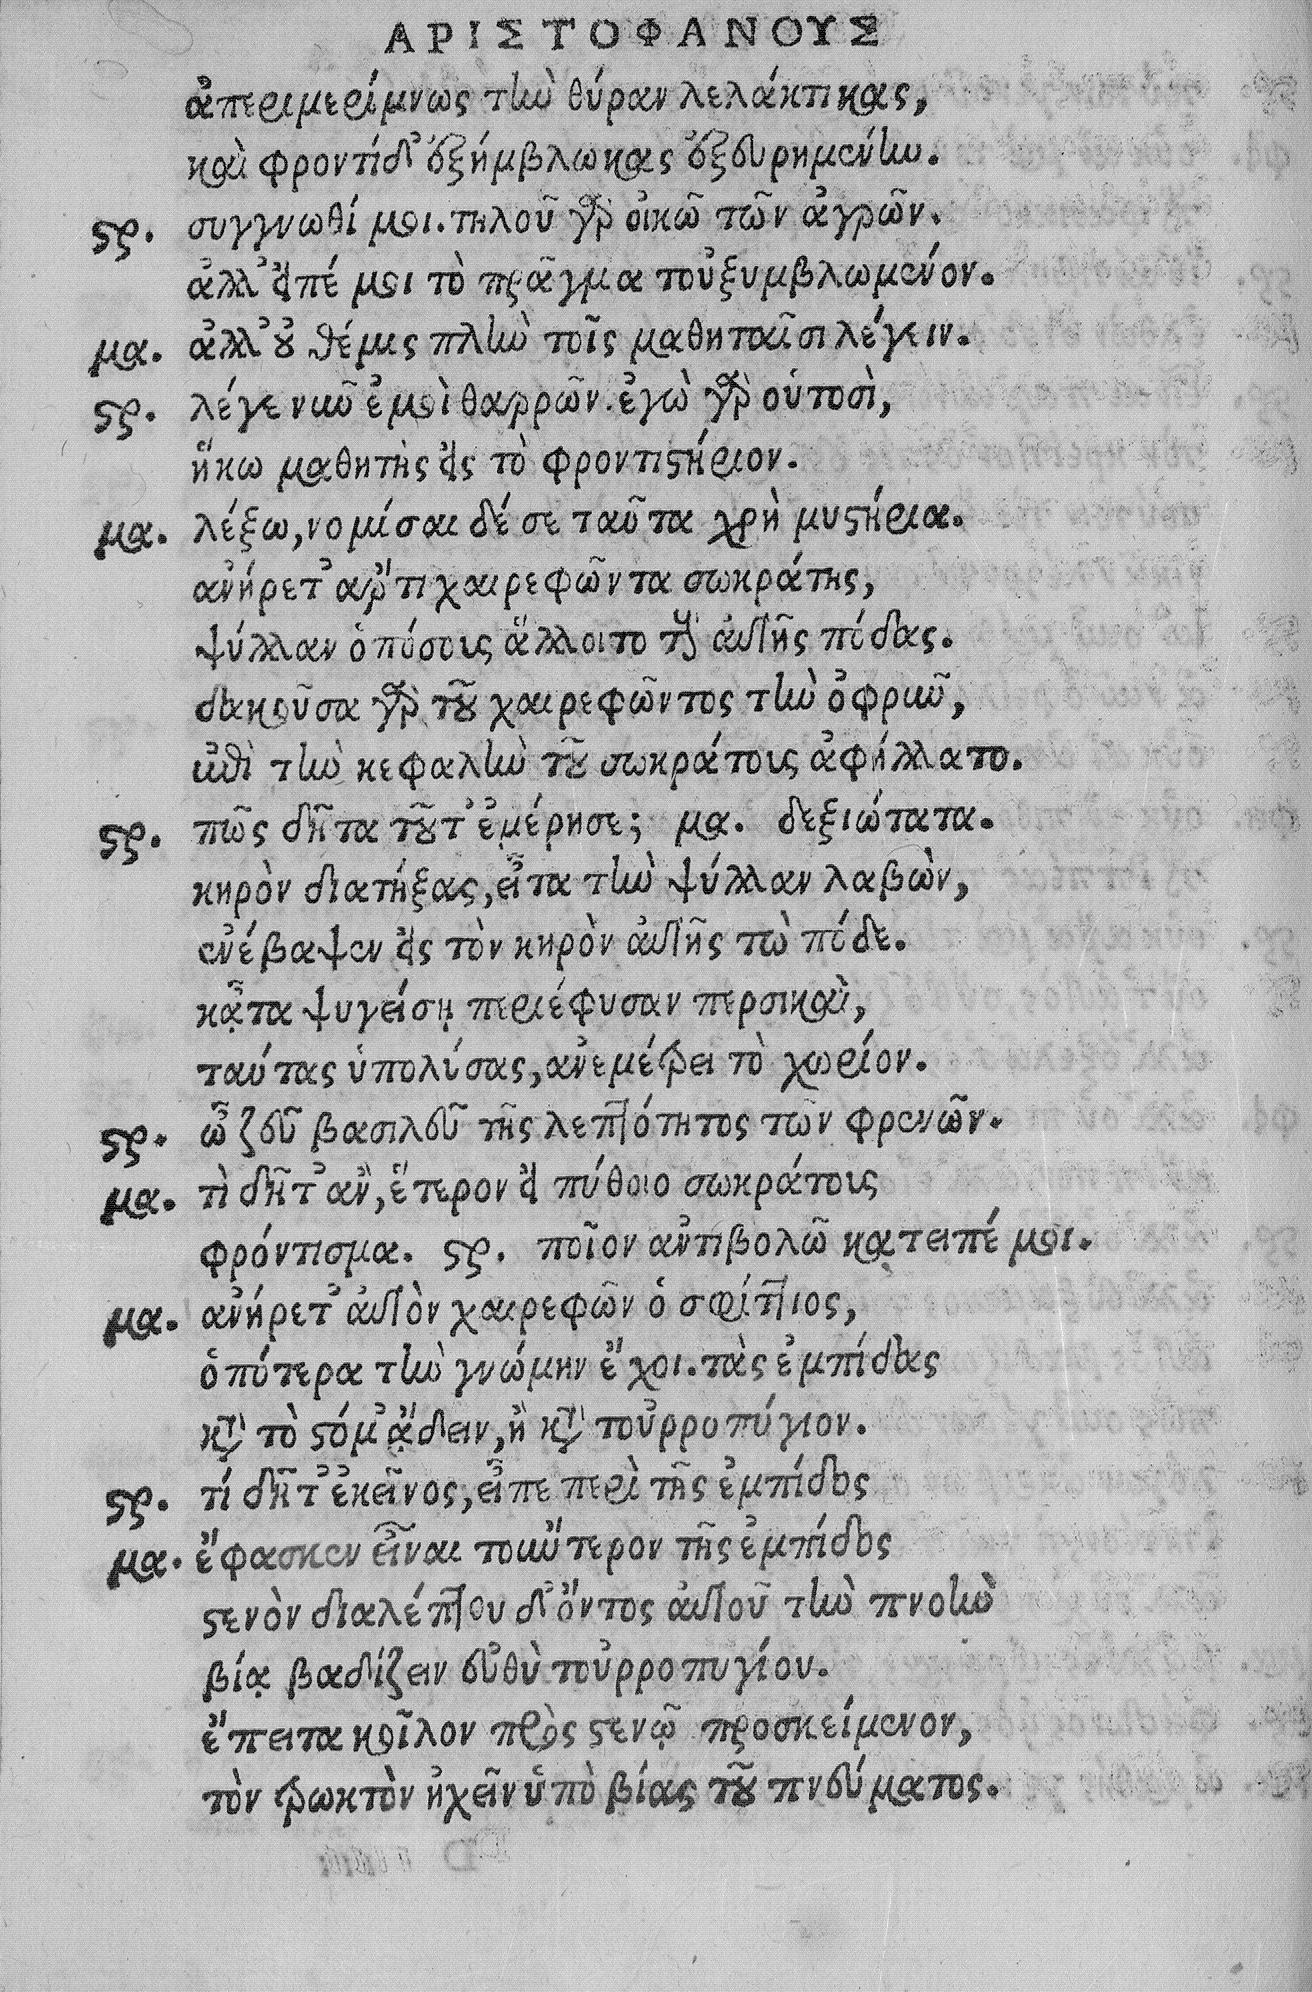 ΑΡΙΣΤΟΦΑΝΟΥΣ
ἀπεριμερίμνως τὴν θύραν λελάκτικας,
καὶ φροντίδ' ἐξήμβλωκας ἐξευρημένην.
ςρ. συγγνωθί μοι. τηλοῦ γὰρ οἰκῶ τῶν ἀγρῶν.
ἀλλ' εἰπέ μοι τὸ πρᾶγμα τοὐξυμβλωμένον.
μα. ἀλλ' οὐ θέμις πλὴν τοῖς μαθηταῖσι λέγειν.
ςρ. λέγε νιῦ ἐμοὶ θαρρῶν. ἐγὼ γὰρ οὑτοσὶ,
ἥκω μαθητὴς εἰς τὸ φροντιστήριον.
μα. λέξω, νομίσαι δέ σε ταῦτα χρὴ μυστήρια.
ἀνήρετ' ἄρτι χαιρεφῶντα σωκράτης,
ψύλλαν ὁπόσους ἅλλοιτο τοὺς αὑτῆς πόδας.
δακοῦσα γὰρ τοῦ χαιρεφῶντος τὴν ὀφρῦν,
ἐπὶ τὴν κεφαλὴν τοῦ σωκράτους ἀφήλλατο.
ςρ. πῶς δῆτα τοῦτ' ἐμέρησε; μα. δεξιώτατα.
κηρὸν διατήξας, εἶτα τὴν ψύλλαν λαβὼν,
ἐνέβαψεν εἰς τὸν κηρὸν αὐτῆς τὼ πόδε.
κᾆτα ψυγείσῃ περιέφυσαν περσικαὶ,
ταύτας ὑπολύσας, ἀνεμέτρει τὸ χωρίον.
ςρ. ὦ ζεῦ βασιλεῦ τῆς λεπτότητος τῶν φρενῶν.
μα. τὶ δῆτ' ἂν, ἕτερον εἰ πύθοιο σωκράτους
φρόντισμα. ςρ. ποῖον ἀντιβολῶ κατειπέ μοι.
μα. ἀνήρετ' αὐτὸν χαιρεφῶν ὁ σφίττιος,
ὁπότερα τὴν γνώμην ἔχοι. τὰς ἐμπίδας
κατὰ τὸ στόμ' ᾄδειν, ἢ κατὰ τοὐρροπύγιον.
ςρ. τί δῆτ' ἐκεῖνος, εἶπε περὶ τῆς ἐμπίδος
μα. ἔφασκεν εἶναι τοὔντερον τῆς ἐμπίδος
στενὸν διαλέπτου δ' ὄντος αὐτοῦ τὴν πνοὴν
βίᾳ βαδίζειν εὐθὺ τοὐρροπυγίου.
ἔπειτα κοῖλον πρὸς στενῷ προσκείμενον,
τὸν πρωκτὸν ἠχεῖν ὑπὸ βίας τοῦ πνεύματος.